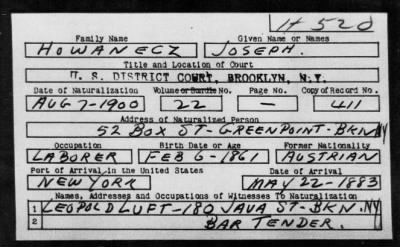 H 520
Family Name Given Name or Names
HOWANECZ JOSEPH.
Title and Location of Court
U. S. DISTRICT COURT, BROOKLYN, N.Y.
Date of Naturalization Volume or Bundle No. Page No. Copy of Record No.
AUG 7-1900 22 — 411
Address of Naturalized Person
52 BOX ST-GREENPOINT-BKN NY
Occupation Birth Date or Age Former Nationality
LABORER FEB 6-1861 AUSTRIAN
Port of Arrival in the United States Date of Arrival
NEW YORK MAY 22-1883
Names, Addresses and Occupations of Witnesses To Naturalization
1 LEOPOLD LUFT-180 JAVA ST-BKN.NY
2 BAR TENDER.